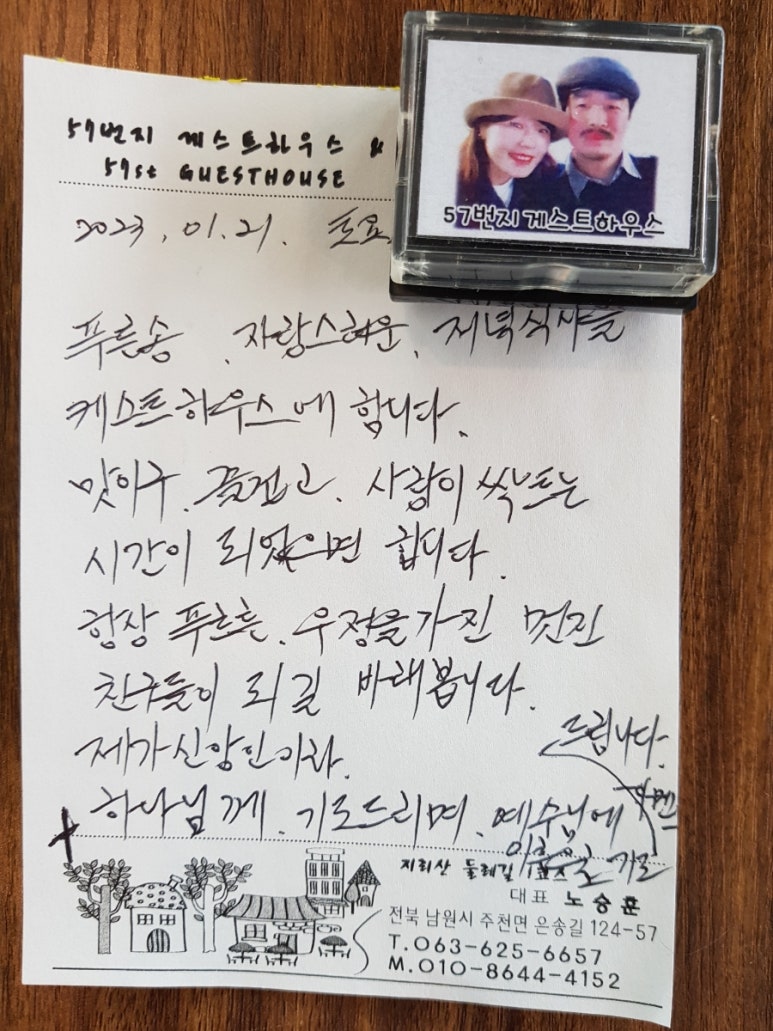 57번지 게스트하우스
57st GUESTHOUSE
57번지게스트하우스
2023. 01. 21. 토요
푸른솔, 자랑스러운, 저녁식사를
케스트하우스에 합니다.
맛이구, 즐겁고, 사랑이 싹트는
시간이 되었으면 합니다.
항상 푸르른, 우정을 가진 멋진
친구들이 되길 바래봅니다.
제가신앙인이라.
하나님께, 기도드리며, 예수님에
이름으로 기도
드립니다.
아멘
지리산 둘레길 1코스
대표 노승훈
전북 남원시 주천면 은송길 124-57
T.063-625-6657
M.010-8644-4152